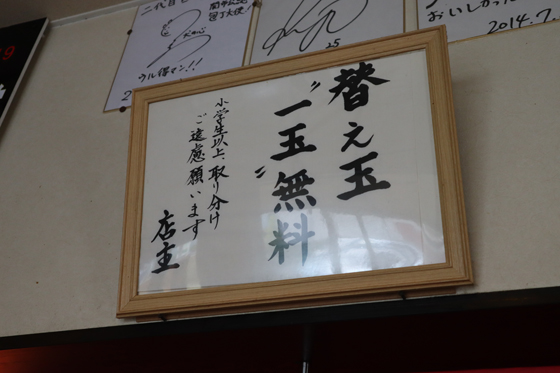 替え玉
"一玉無料"
小学生以上、取り分け
ご遠慮願います
店主
二代目
ウル得マン!!
25
おいしかった
2014.7